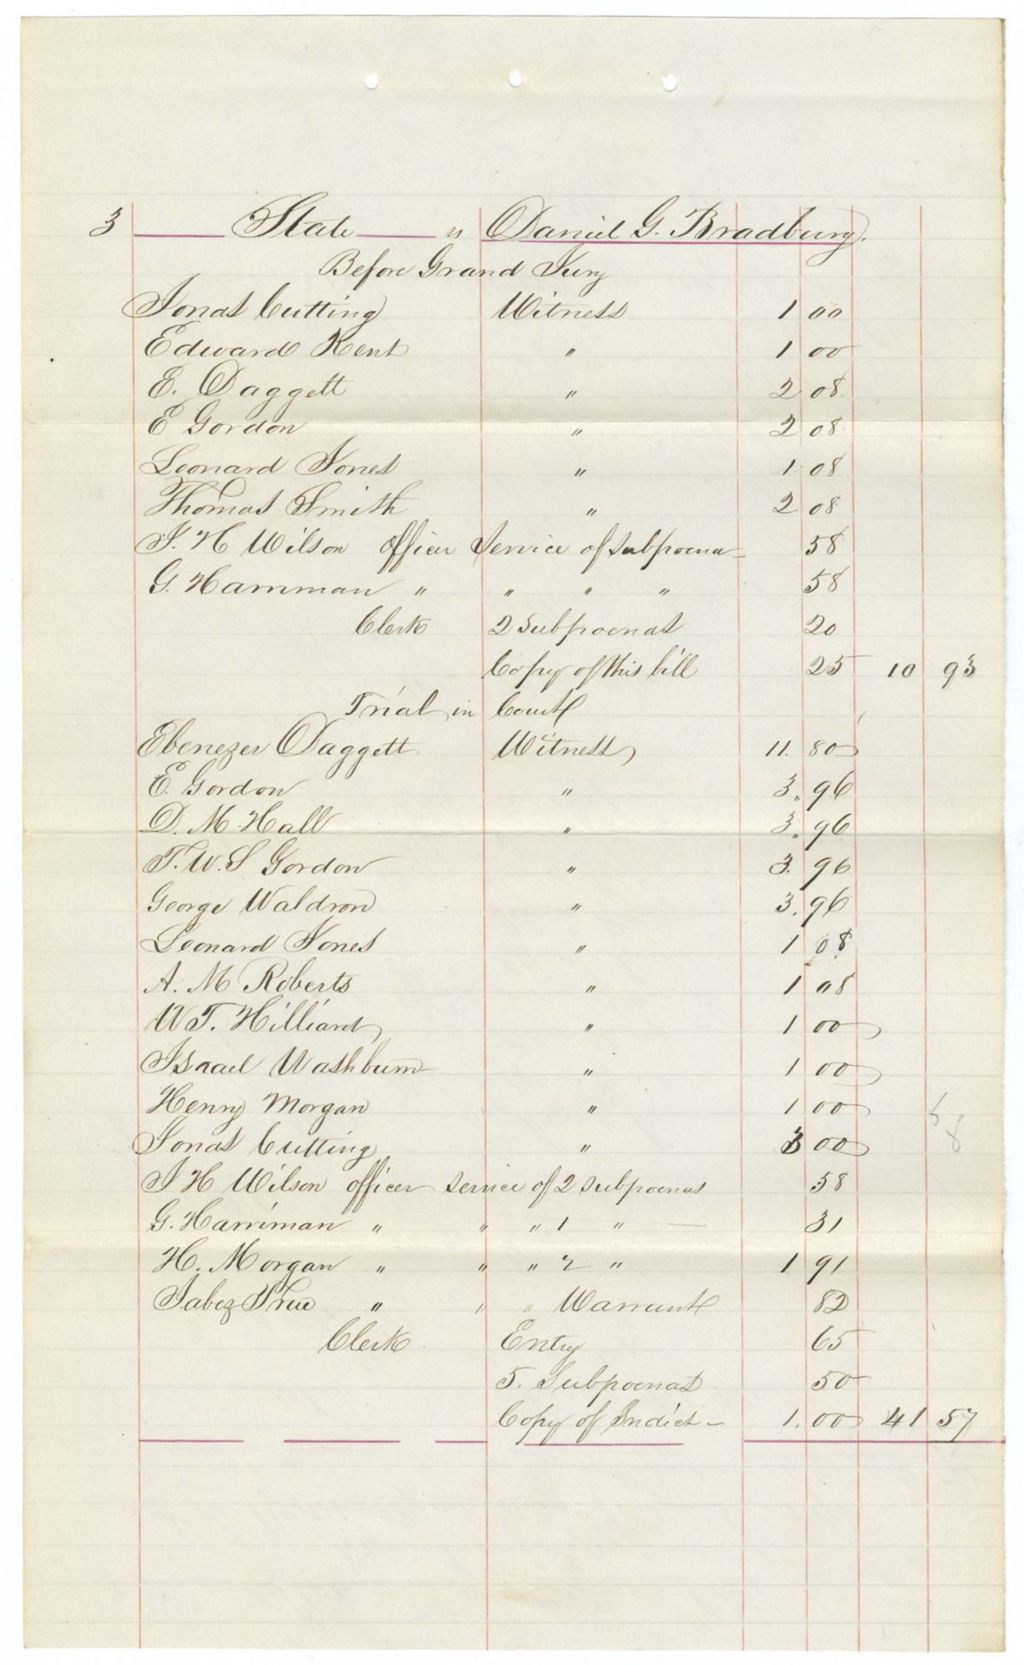 3 State vs Daniel G. Bradbury.
Before Grand Jury
Jonas Cutting Witness 1 00
Edward Kent " 1 00
E. Daggett " 2 08
E Gordon " 2 08
Leonard Jones " 1 08
Thomas Smith " 2 08
J. H Wilson officer Service of Subpoena 58
G. Harriman " " " " 58
Clerk 2 Subpoenas 20
Copy of this bill 25 10 93
Trial in Court
Ebenezer Daggett Witness 11. 80
E. Gordon " 3. 96
D. M. Hall " 3. 96
T. W. S Gordon " 3. 96
George Waldron " 3. 96
Leonard Jones " 1 08
A. M Roberts " 1 08
W T. Hilliard " 1 00
Israel Washburn " 1 00
Henry Morgan " 1 00
Jonas Cutting " 3 00
J H Wilson officer service of 2 subpoenas 58
G. Harriman " " " 1 " 31
H. Morgan " " " 2 " 1 91
Jabez True " " " Warrant 82
Clerk Entry 65
5. Subpoenas 50
Copy of Indict - 1. 00 41 57